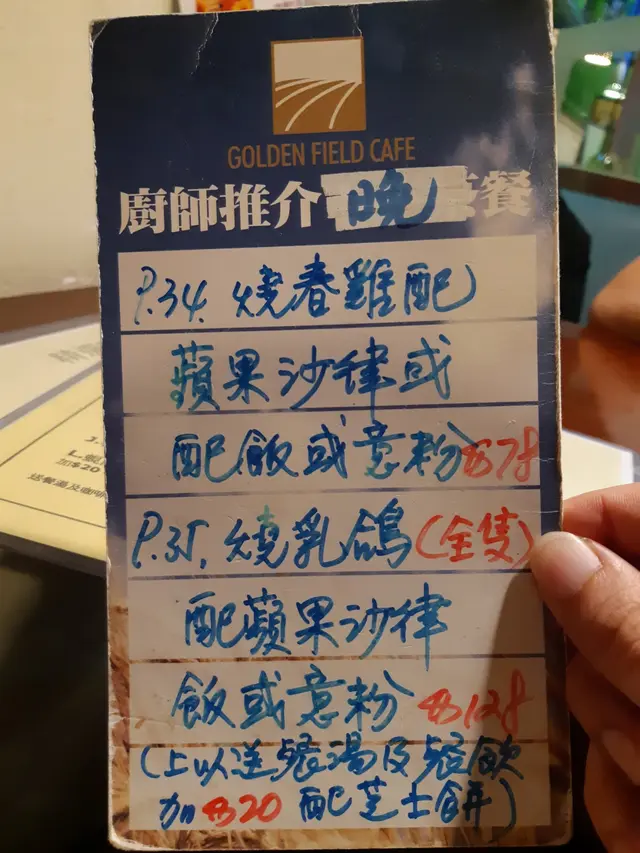 GOLDEN FIELD CAFE
廚師推介 晚 餐
P.34. 燒春雞配
蘋果沙律或
配飯或意粉 $78
P.35. 燒乳鴿(全隻)
配蘋果沙律
飯或意粉 $128
(上以送餐湯及餐飲
加$20 配芝士餅)
加$20